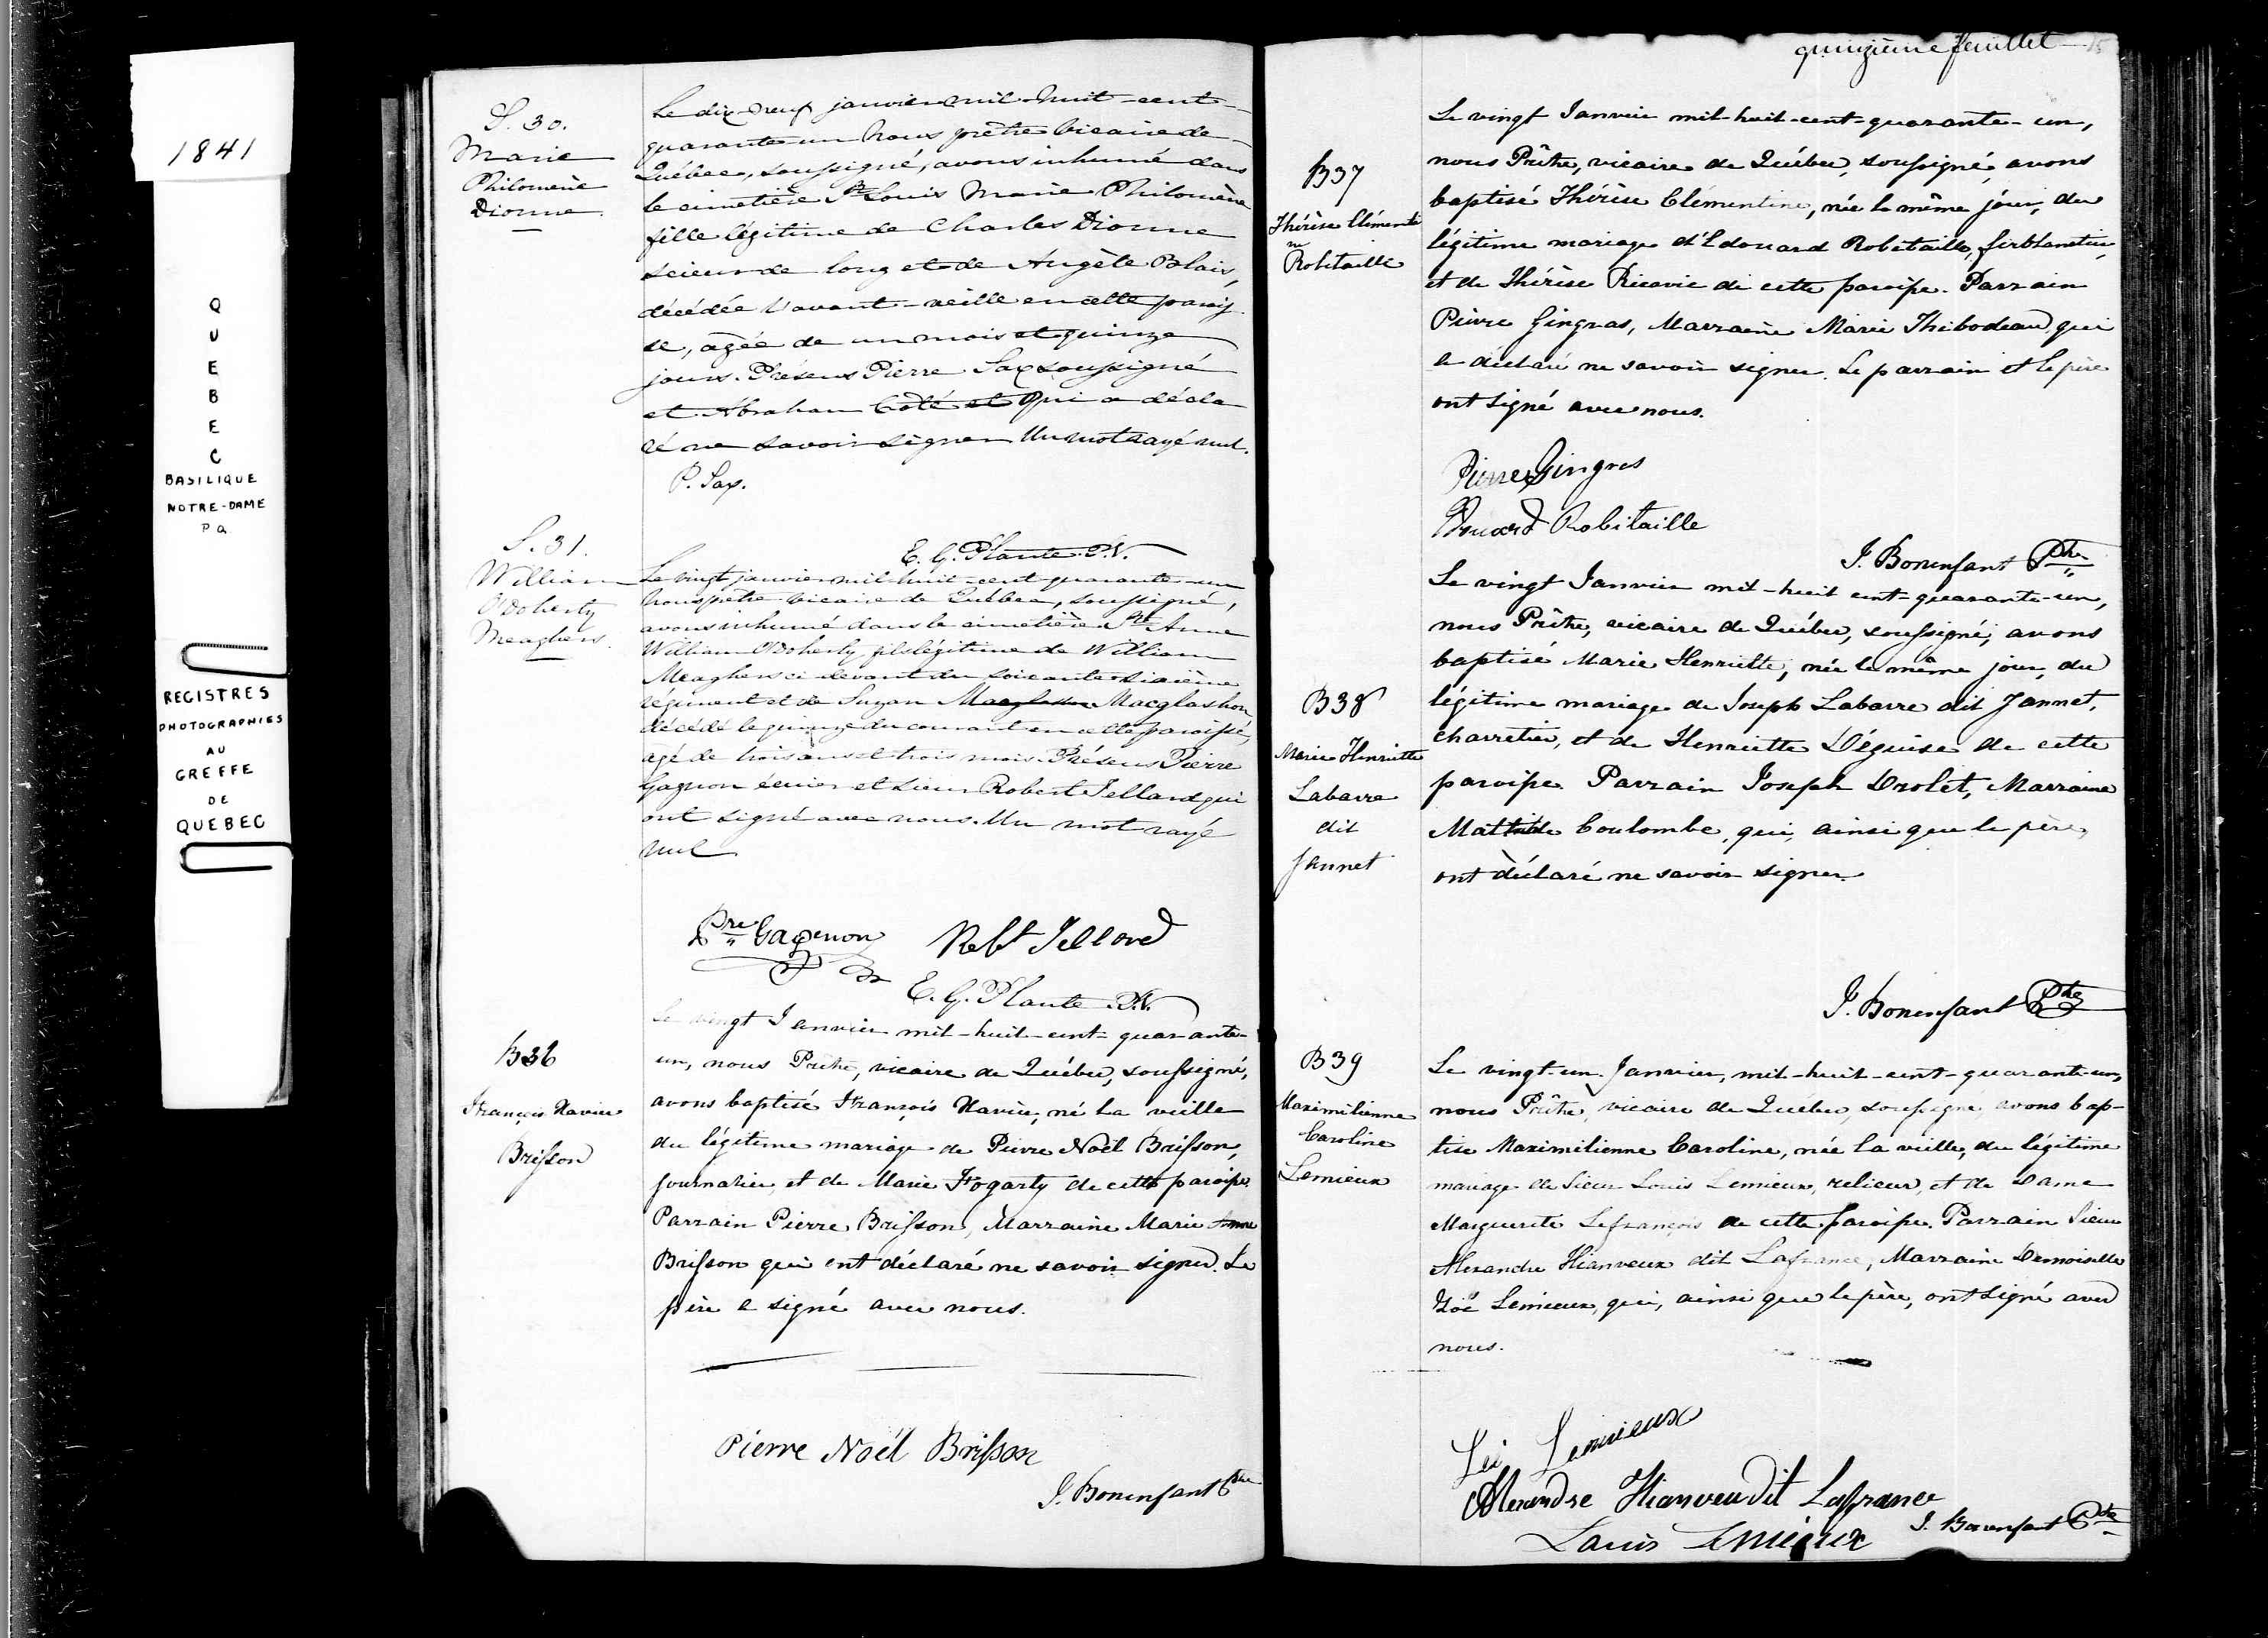 1841
Q
U
E
B
E
C
BASILIQUE
NOTRE-DAME
P Q
REGISTRES
PHOTOGRAPHIES
AU
GREFFE
DE
QUEBEC
S. 30.
Marie
Philomène
Dionne
Le dix-neuf janvier mil-huit-cent-
quarante-un nous prêtre vicaire de
Québec, soussigné, avons inhumé dans
le cimetière St Louis Marie Philomène
fille légitime de Charles Dionne
scieur de long et de Angèle Blais,
décédée l'avant-veille en cette parois-
se, agée de un mois et quinze
jours. Présens Pierre Sax soussigné
et Abraham Coté et qui a décla
ré ne savoir signer Un mot rayé nul.
P. Sax.
E. G. Plante P.V.
S. 31.
William
O'Doherty
Meaghers.
Le vingt janvier mil huit-cent quarante-un
nous prêtre vicaire de Québec, soussigné,
avons inhumé dans le cimetière Ste Anne
William O'Doherty fils légitime de William
Meaghers ci devant du soixante sixième
régiment et de Susan Macglashon
décédé le quinze du courant en cette paroisse,
agé de trois ans et trois mois. Présens Pierre
Gagnon écuier et Sieur Robert Jellard qui
ont signé avec nous. Un mot rayé
nul
Pre Gagnon Robt Jellard
E. G. Plante P.V.
B36
François Xavier
Brisson
Le vingt Janvier mil-huit-cent-quarante-
un, nous Prêtre, vicaire de Québec, soussigné,
avons baptisé François Xavier, né la veille
du légitime mariage de Pierre Noël Brisson,
journalier, et de Marie Fogarty de cette paroisse.
Parrain Pierre Brisson, Marraine Marie Anne
Brisson qui ont déclaré ne savoir signer. Le
père a signé avec nous.
Pierre Noël Brisson
J. Bonenfant Ptre
quinzième feuillet 15
B37
Thérèse Clémenti
ne
Robitaille
Le vingt Janvier mil-huit-cent-quarante-un,
nous Prêtre, vicaire de Québec, soussigné, avons
baptisé Thérèse Clémentine, née le même jour, du
légitime mariage d'Edouard Robitaille, ferblantier,
et de Thérèse de cette paroisse. Parrain
Pierre Gingras, Marraine Marie Thibodeau qui
a déclaré ne savoir signer. Le parrain et le père
ont signé avec nous.
Pierre Gingras
Edouard Robitaille
J. Bonenfant Ptre
B38
Marie Henriette
Labarre
dit
Jannet
Le vingt Janvier mil-huit cent-quarante-un,
nous Prêtre, vicaire de Québec, soussigné, avons
baptisé Marie Henriette, née le même jour, du
légitime mariage de Joseph Labarre dit Jannet,
charretier, et de Henriette Déguise de cette
paroisse. Parrain Joseph Drolet, Marraine
Mathilde Coulombe, qui, ainsi que le père,
ont déclaré ne savoir signer.
J. Bonenfant Ptre
B39
Maximilienne
Caroline
Lemieux
Le vingt-un Janvier, mil-huit-cent-quarante-un,
nous Prêtre, vicaire de Québec, soussigné avons bap-
tisé Maximilienne Caroline, née la veille, du légitime
mariage de Sieur Louis Lemieux, relieur, et de Dame
Marguerite Lefrançois de cette paroisse. Parrain Sieur
Alexandre Hianveux dit Lafrance, Marraine Demoiselle
Zoé Lemieux, qui, ainsi que le père, ont signé avec
nous.
Lemieux
Alexandre Hianveu dit Lafrance
Louis Lemieux J. Bonenfant Ptre